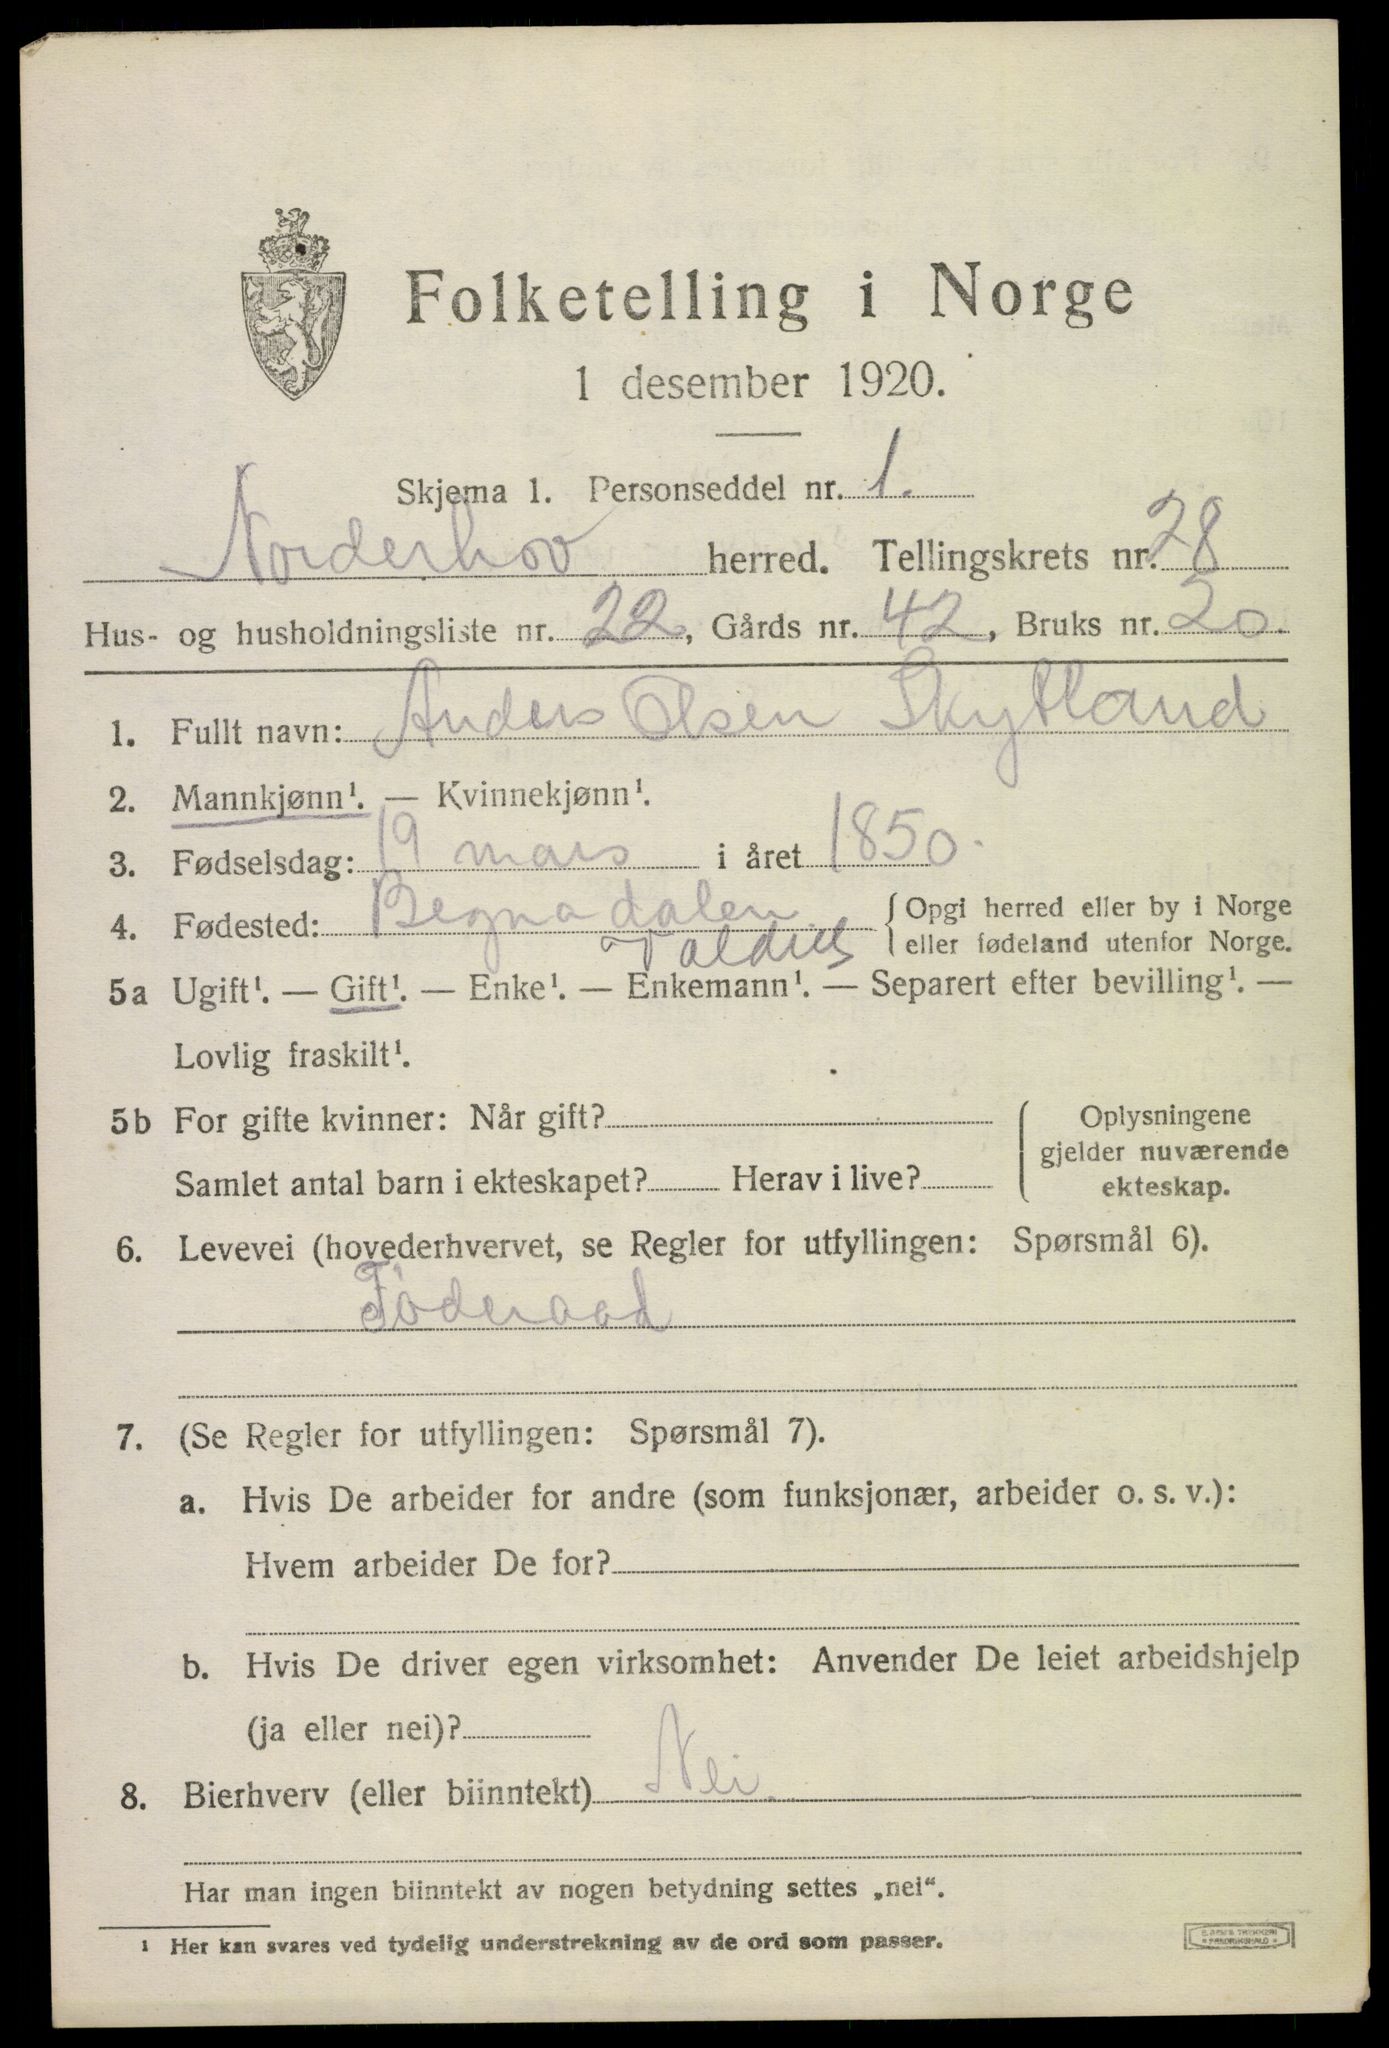 Folketelling i Norge
1 desember 1920.
Skjema 1. Personseddel nr. 1.
Norderhov herred. Tellingskrets nr. 28
Hus- og husholdningsliste nr. 22, Gårds nr. 42, Bruks nr. 20.
1. Fullt navn: Anders Olsen Skytland
2. Mannkjønn¹. — Kvinnekjønn¹.
3. Fødselsdag: 19 mars i året 1850.
4. Fødested: Begnadalen { Opgi herred eller by i Norge
Valdres eller fødeland utenfor Norge.
5a Ugift¹. — Gift¹. — Enke¹. — Enkemann¹. — Separert efter bevilling¹. —
Lovlig fraskilt¹.
5b For gifte kvinner: Når gift? { Oplysningene
gjelder nuværende
Samlet antal barn i ekteskapet? Herav i live? ekteskap.
6. Levevei (hovederhvervet, se Regler for utfyllingen: Spørsmål 6).
Föderaad
7. (Se Regler for utfyllingen: Spørsmål 7).
a. Hvis De arbeider for andre (som funksjonær, arbeider o. s. v.):
Hvem arbeider De for?
b. Hvis De driver egen virksomhet: Anvender De leiet arbeidshjelp
(ja eller nei)?
8. Bierhverv (eller biinntekt) Nei.
Har man ingen biinntekt av nogen betydning settes „nei“.
¹ Her kan svares ved tydelig understrekning av de ord som passer.